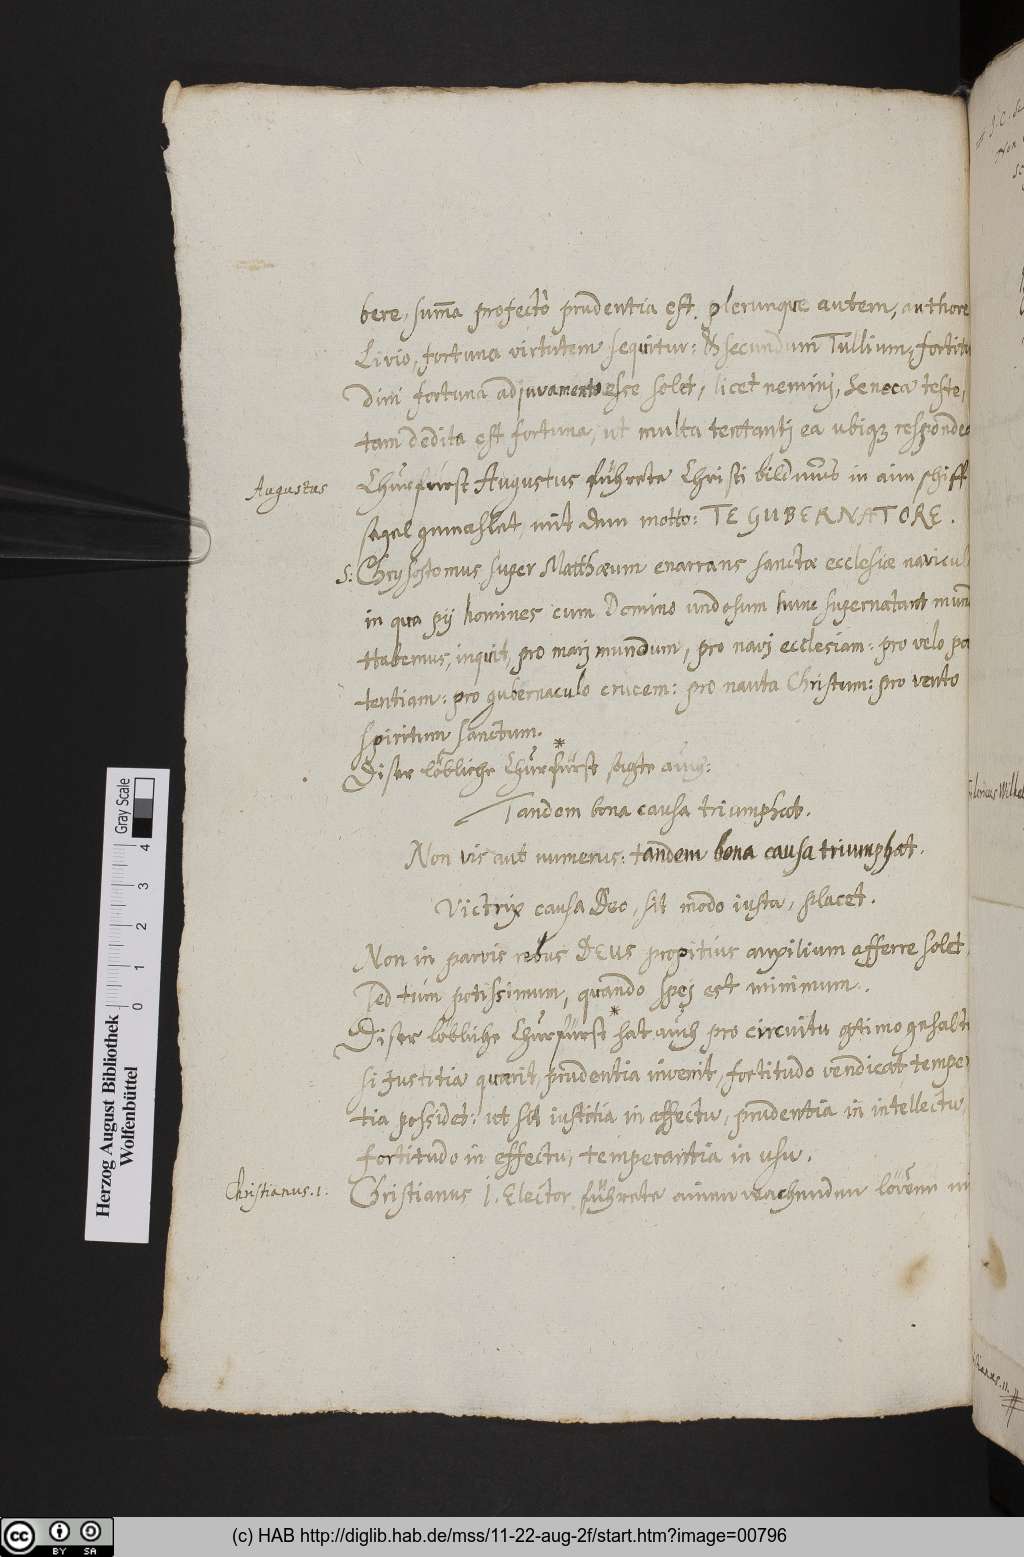 bere, sum̄a profectò prudentia est. plerunque autem, authore
Livio, fortuna virtutem sequitur: & secundum Tullium, fortitu
dini fortuna adjuramento esse solet, licet nemini, Seneca teste,
tam dedita est fortuna, ut multa tentanti ea ubiq3 responde
Augustus
Churfürst Augustus führete Christi bildnus in aim schiff
segel gemahlet, mit dem motto: TE GUBERNATORE.
S: Chrysostomus super Matthæum enarrans sanctæ ecclesiæ navicul
in qua pij homines cum Domino undosum hunc supernatant mun
Habemus, inquit, pro mari mundum, pro navi ecclesiam: pro velo pœ
tentiam: pro gubernaculo crucem: pro nauta Christum: pro vento
spiritum sanctum.
Diser löbliche Churfürst* sagte auch:
Tandem bona causa triumphat.
Non vis aut numerus: tandem bona causa triumphat.
Victrix causa Deo, sit modo iusta, placet.
Non in parvis rebus DEUS propitius auxilium afferre solet,
sed tùm potissimum, quando spei est minimum.
Diser löbliche Churfürst* hat auch pro circuitu optimo gehalte
si Justitia quærit, prudentia invenit, fortitudo vendicat, tempe
tia possidet: ut sit iustitia in affectu, prudentia in intellectu,
fortitudo in effectu, temperantia in usu.
Christianus. 1.
Christianus 1. Elector führete ainen wachenden löwen
Wilhel
(c) HAB http://diglib.hab.de/mss/11-22-aug-2f/start.htm?image=00796
Herzog August Bibliothek
Wolfenbüttel
Gray Scale
0 1 2 3 4
cc BY SA